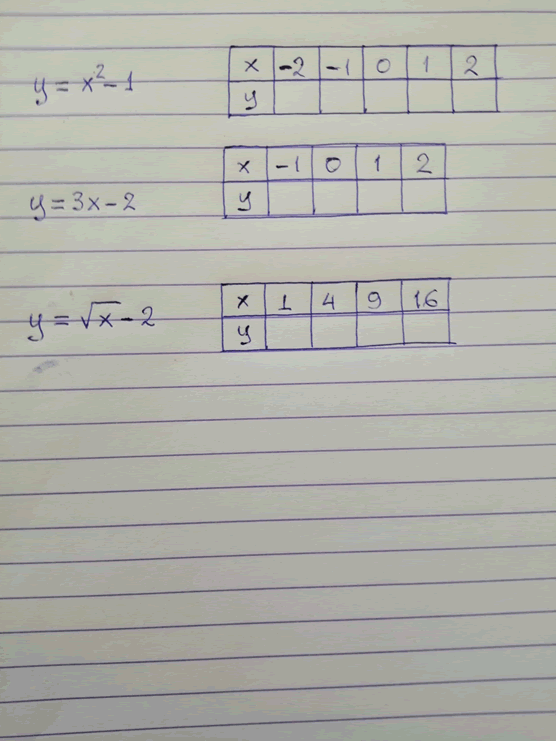 y = x²-1
x -2 -1 0 1 2
y
y = 3x-2
x -1 0 1 2
y
y = √x-2
x 1 4 9 16
y